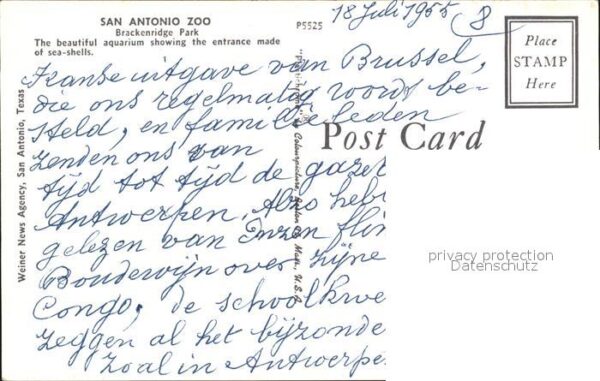 SAN ANTONIO ZOO
Brackenridge Park
The beautiful aquarium showing the entrance made
of sea-shells.
P5525
18 Juli 1955
8
Place
STAMP
Here
Post Card
Weiner News Agency, San Antonio, Texas
uitgave van Brussel,
die ons regelmatig wordt be-
steld, en familieleden
zenden ons van
tijd tot tijd de gazet
Antwerpen. Alzo heb
gelezen van Onzen
Boudewijn over zijne
Congo, de schoolkwe
zeggen al het bijzonde
zoal in Antwerpe
privacy protection
Datenschutz